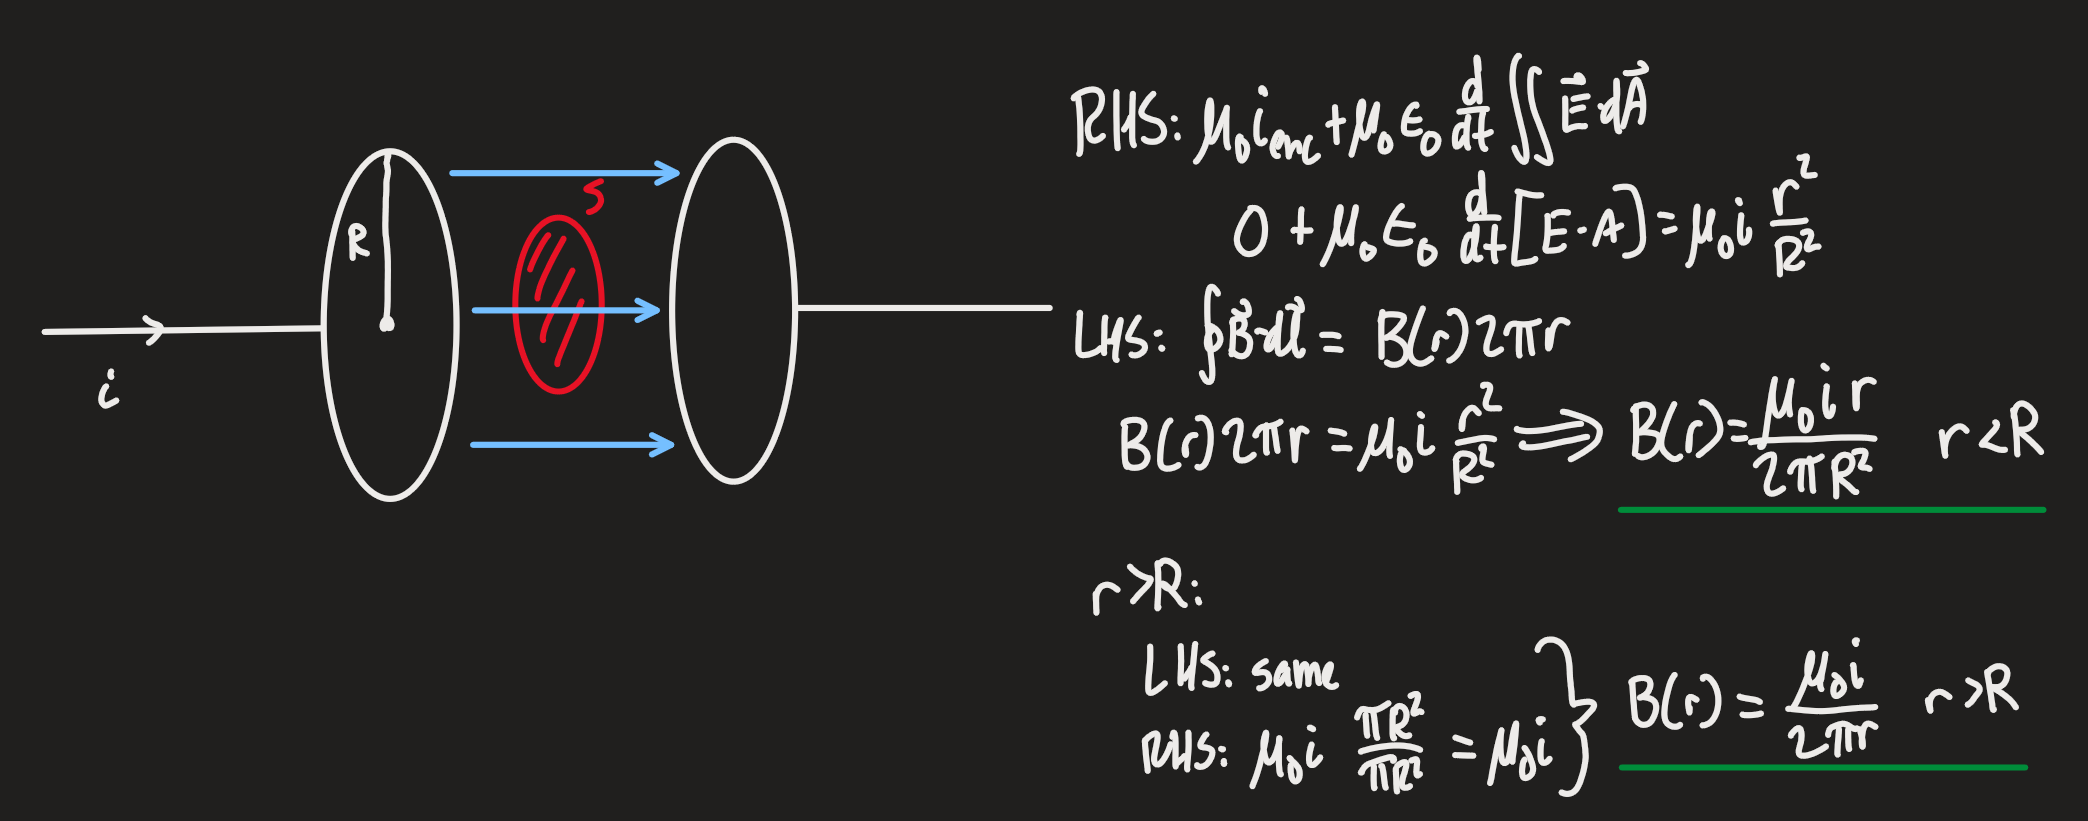 R
i
S
RHS: μ₀i_enc + μ₀ϵ₀ d/dt ∬ E⃗·dA⃗
0 + μ₀ϵ₀ d/dt [E·A] = μ₀i r²/R²
LHS: ∮ B⃗·dl⃗ = B(r)2πr
B(r)2πr = μ₀i r²/R² ⟹ B(r) = μ₀ir/2πR² r<R
r>R:
LHS: same
RHS: μ₀i πR²/πR² = μ₀i } B(r) = μ₀i/2πr r>R